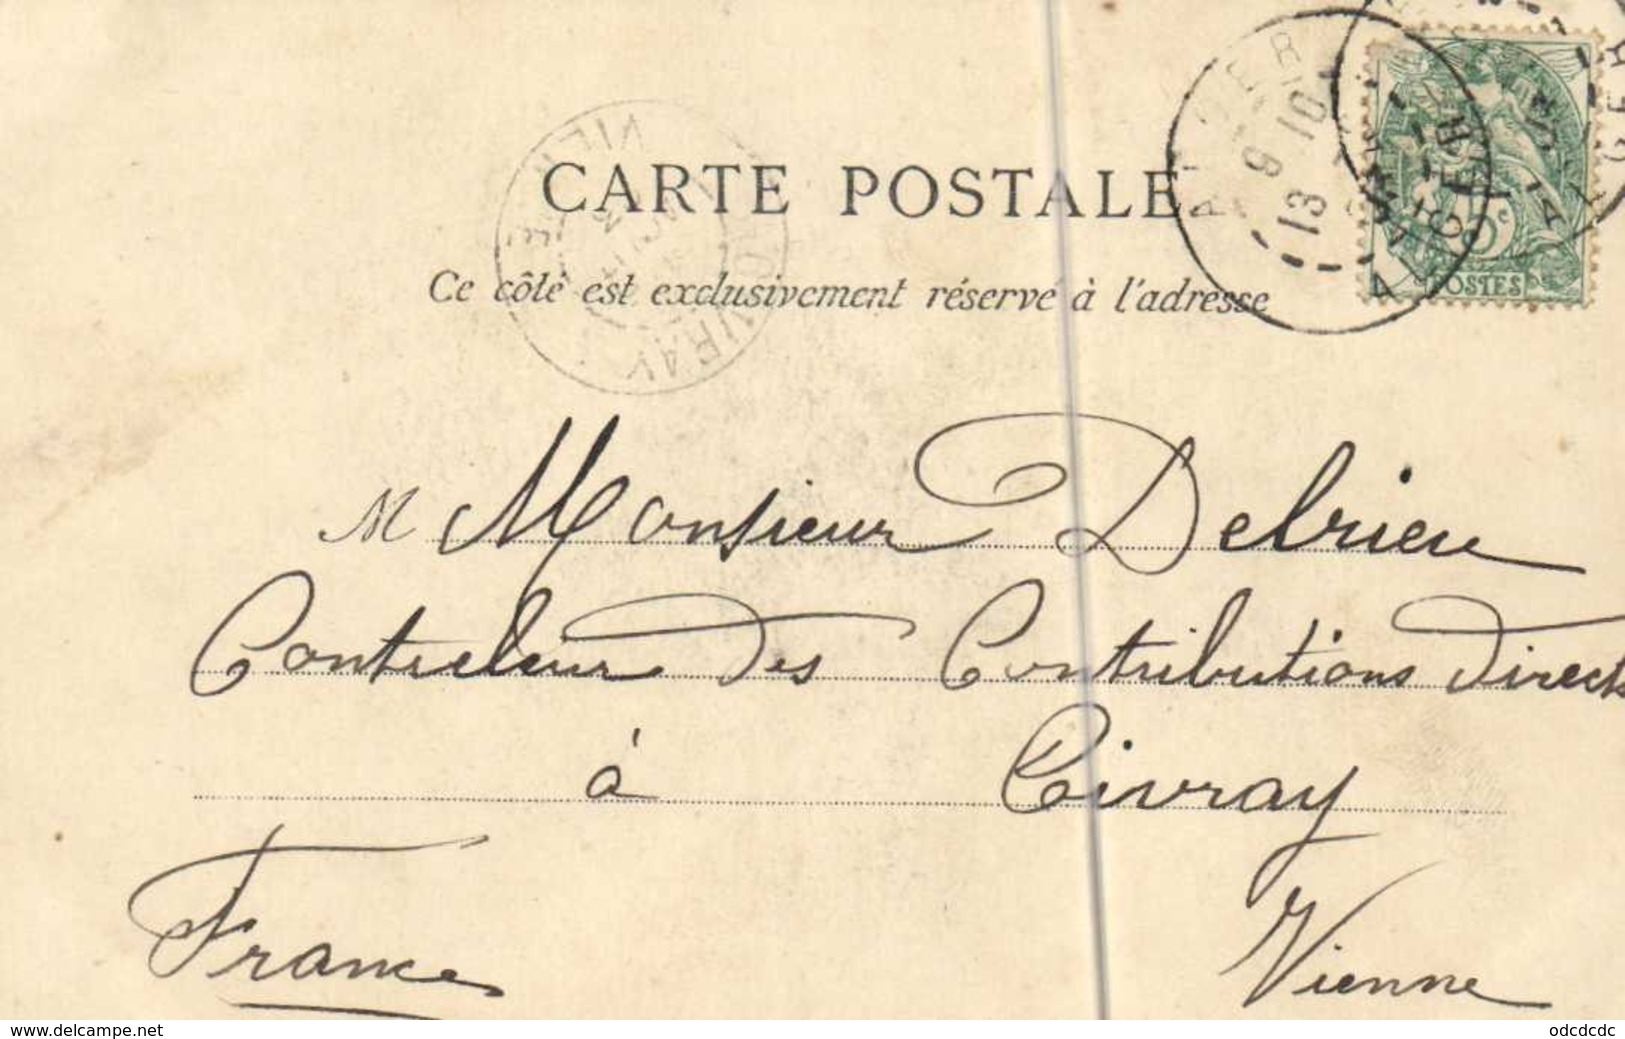 CARTE POSTALE
Ce côté est exclusivement réservé à l'adresse
ALGER
9 10
13
POSTES
M Monsieur Delrieu
Controleur des Contributions directes
à Civray
France Vienne
www.delcampe.net odcdcdc